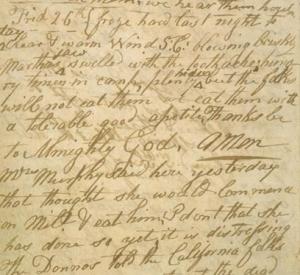 we hear them howl
Frid 26th froze hard last night to
day clear & warm Wind S.E. blowing briskly
Marthas jaw swelled with the toothache; hungry
ry times in camp, plenty hides but the folks
will not eat them we eat them with
a tolerable good apetite. Thanks be
to Almighty God, Amen
Mrs Murphy said here yesterday
that thought she would commence
on Milt & eat him, I dont that she
has done so yet, it is distressing
The Donnos told the California folks
the dead